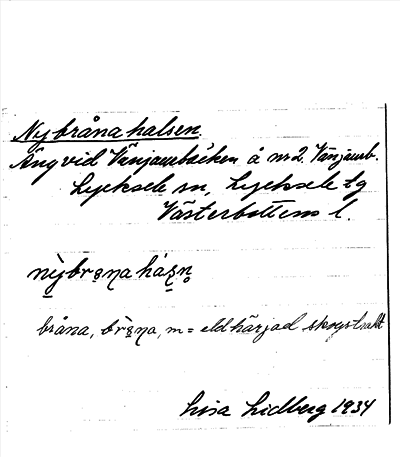 Nybrånahalsen.
Äng vid Vänjaurbäcken å nr 2. Vänjaurb.
Lycksele sn, Lycksele tg
Västerbottens l.
nỳbrå̀na há̀sn̥
bråna, brå̀na, m = eldhärjad skogstrakt
Lisa Lidberg 1934